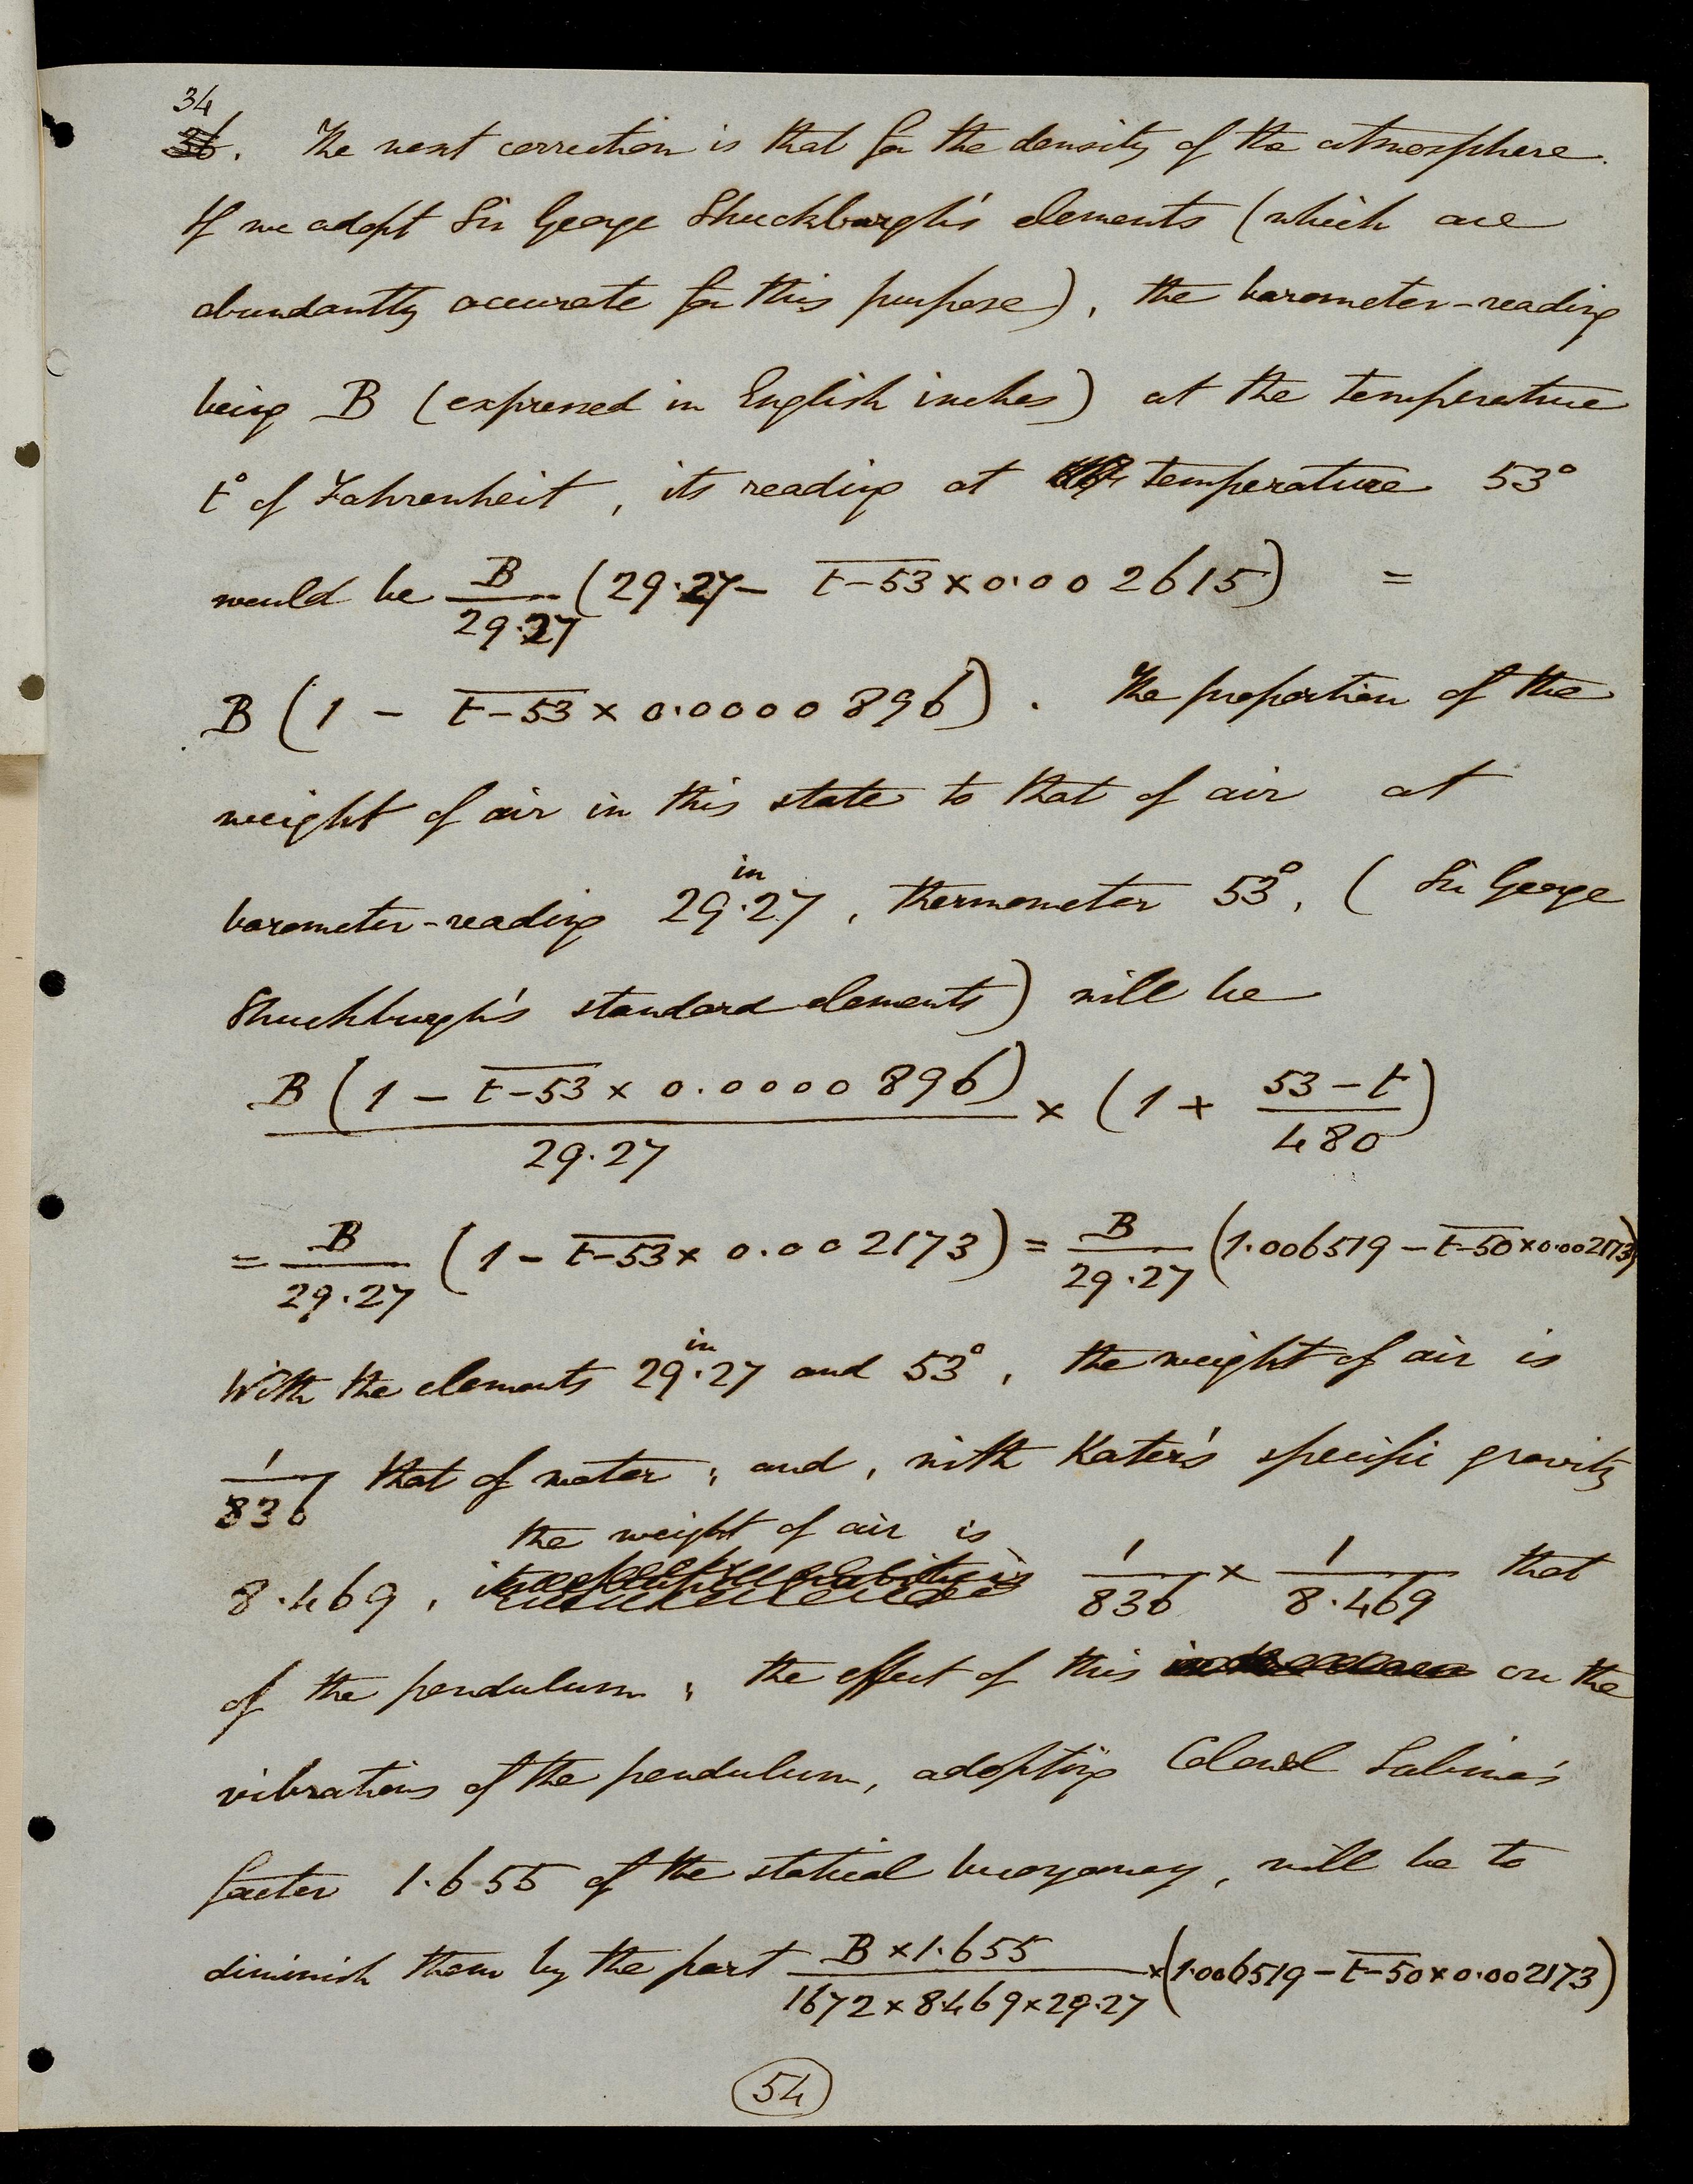 34
36. The next correction is that for the density of the atmosphere.
If we adopt Sir George Shuckburgh's elements (which are
abundantly accurate for this purpose), the barometer-reading
being B (expressed in English inches) at the temperature
t° of Fahrenheit, its reading at temperature 53°
would be B/29.27 (29.27 – t–53 × 0.002615) =
B (1 – t–53 × 0.0000896). The proportion of the
weight of air in this state to that of air at
barometer-reading 29.27 in, thermometer 53°, (Sir George
Shuckburgh's standard elements) will be
B (1 – t–53 × 0.0000896)/29.27 × (1 + 53 – t/480)
= B/29.27 (1 – t–53 × 0.002173) = B/29.27 (1.006519 – t–50 × 0.002173)
With the elements 29.27 in and 53°, the weight of air is
1/836 that of water; and, with Kater's specific gravity
the weight of air is
8.469, 1/836 × 1/8.469 that
of the pendulum; the effect of this on the
vibrations of the pendulum, adopting Colonel Sabine's
factor 1.655 of the statical buoyancy, will be to
diminish them by the part B × 1.655/1672 × 8.469 × 29.27 × (1.006519 – t–50 × 0.002173)
54